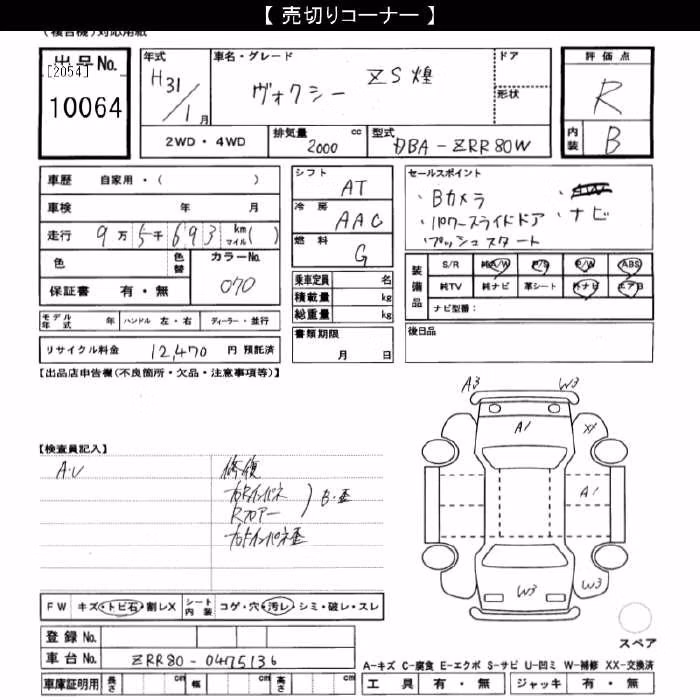 【 売切りコーナー 】
(複合機)対応用紙
出品No.
[2054]
10064
年式
H31/1月
車名・グレード
ヴォクシー ZS 煌
ドア
形状
評価点
R
内装 B
2WD・4WD
排気量 2000 cc
型式 DBA-ZRR80W
車歴 自家用・( )
車検 年 月
走行 9万5千693 km マイル( )
色 色替 カラーNo. 070
保証書 有・無
シフト AT
冷房 AAC
燃料 G
乗車定員 名
積載量 kg
総重量 kg
セールスポイント
・Bカメラ
・パワースライドドア ・ナビ
・プッシュスタート
装備品 S/R 純A/W P/S P/W ABS
純TV 純ナビ 革シート 外ナビ エアB
ナビ型番:
モデル年式 年 ハンドル 左・右 ディーラー・並行
書類期限 月 日
後日品
リサイクル料金 12,470 円 預託済
【出品店申告欄(不良箇所・欠品・注意事項等)】
A3 W3
A1 XX
A1
W3 W3
【検査員記入】
A・U 修復
右Rインパネ
Rフロアー
B・歪
FW キズ・トビ石・割レX シート内装 コゲ・穴・汚レ・シミ・破レ・スレ
登録No.
車台No. ZRR80-0475136
車庫証明用 長さ cm 幅 cm 高さ cm
スペア
A-キズ C-腐食 E-エクボ S-サビ U-凹ミ W-補修 XX-交換済
工具 有・無 ジャッキ 有・無